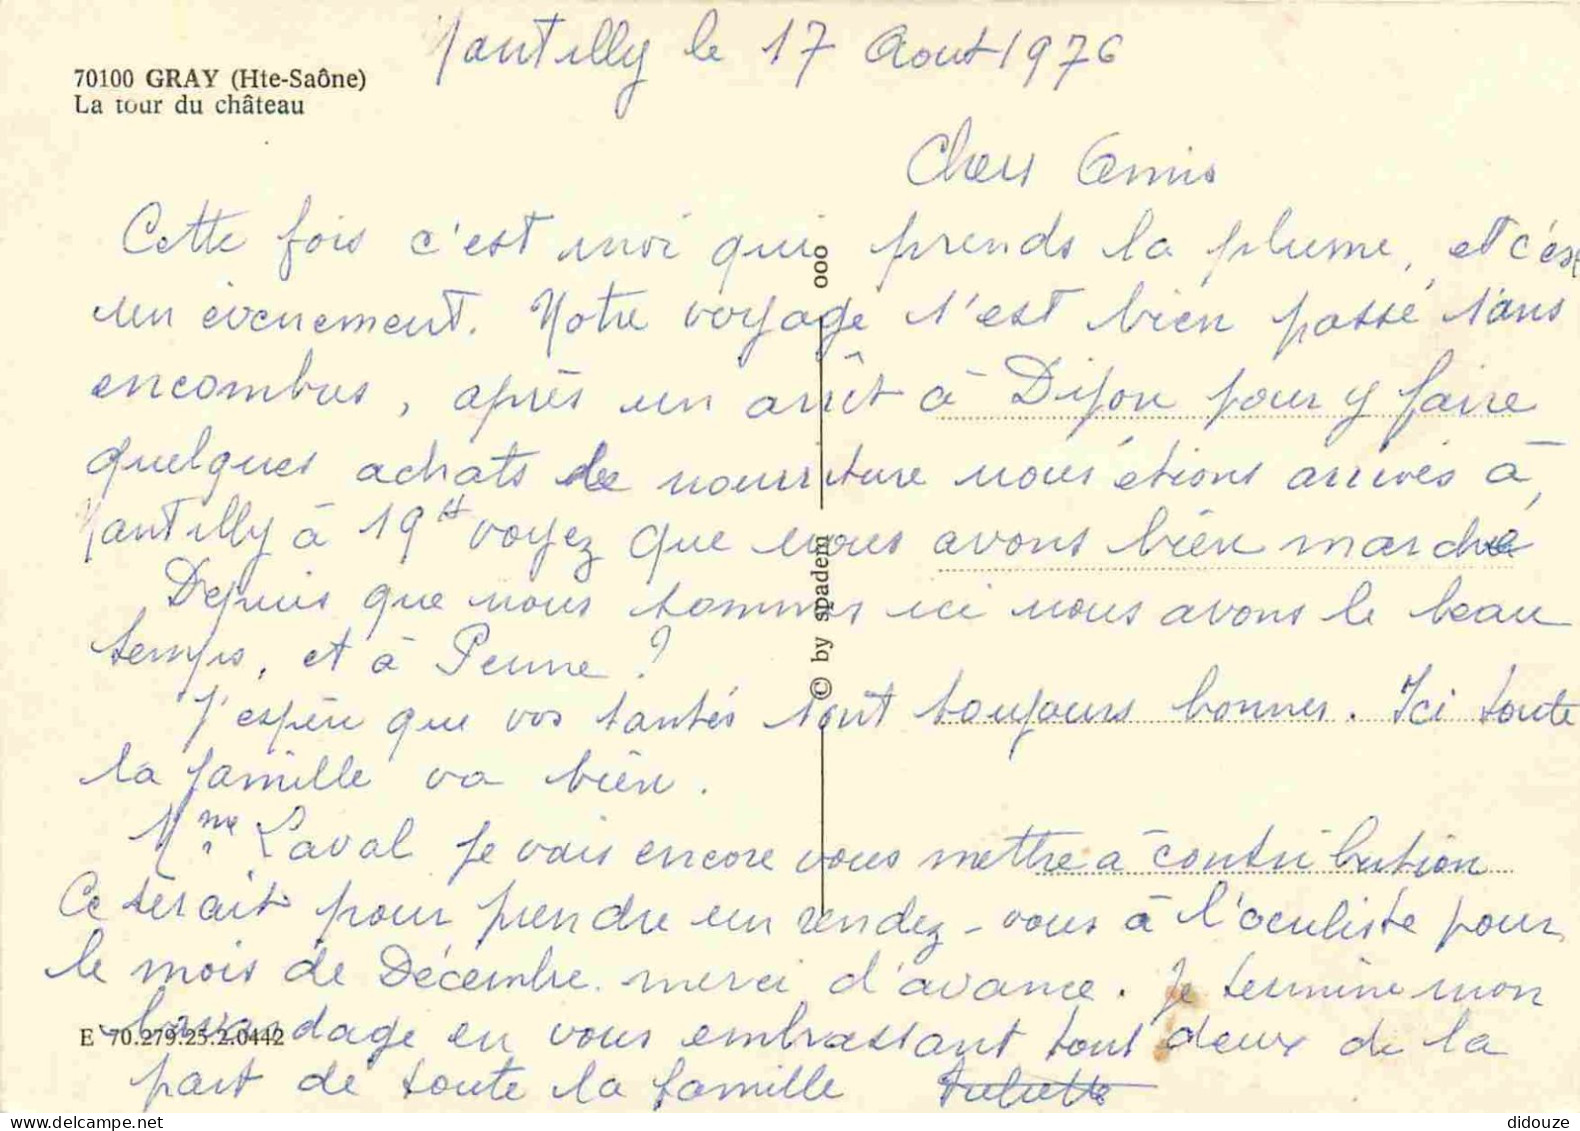 70100 GRAY (Hte-Saône)
La tour du château
Mantilly le 17 Aout 1976
Chers Amis
Cette fois c'est moi qui prends la plume, et c'est
un évenement. Notre voyage s'est bien passé sans
encombres, après un arrêt à Dijon pour y faire
quelques achats de nourriture nous étions arrivés à
Mantilly à 19 H voyez que nous avons bien marché
Depuis que nous sommes ici nous avons le beau
temps, et à Penne ?
J'espère que vos santés sont toujours bonnes. Ici toute
la famille va bien.
Mme Laval je vais encore vous mettre à contribution
Ce serait pour prendre un rendez-vous à l'oculiste pour
le mois de Décembre. merci d'avance. Je termine mon
bavardage en vous embrassant tout deux de la
part de toute la famille Juliette
E 70.279.25.2.0442
© by spadem
ooo
didouze